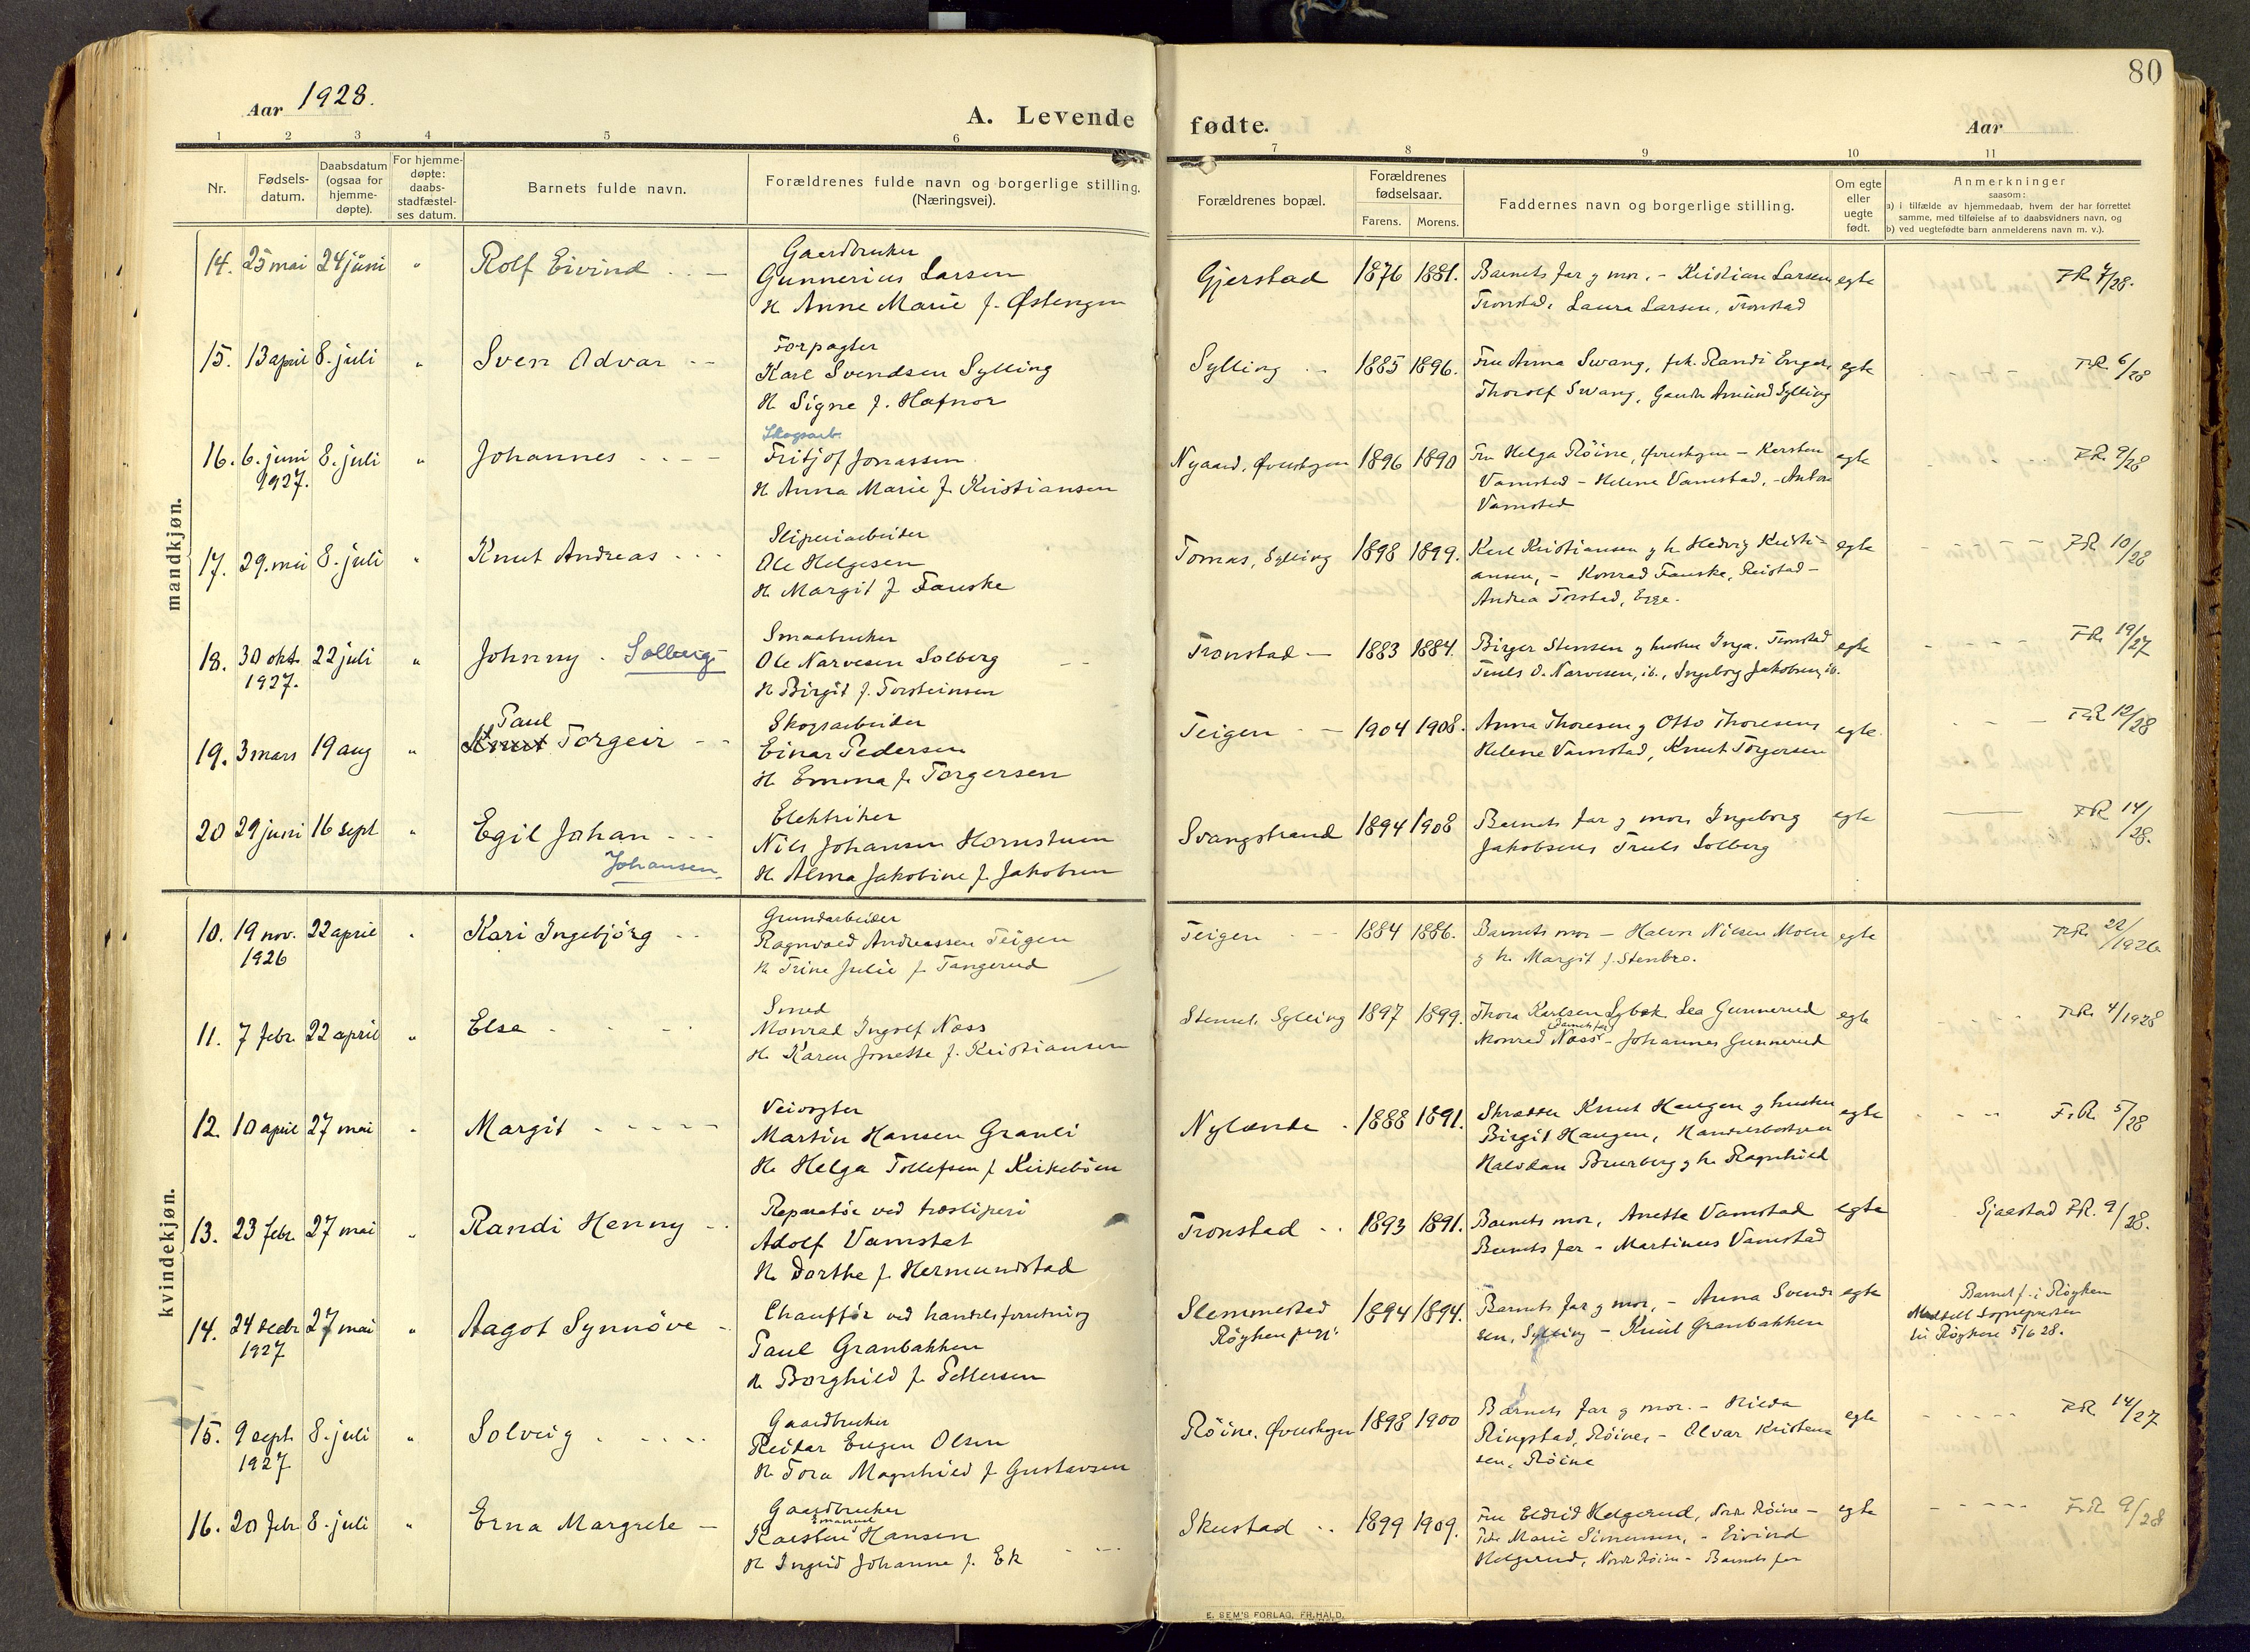 80
Aar 1928.
A. Levende fødte.
Aar
1 2 3 4 5 6 7 8 9 10 11
Nr.
Fødsels-
datum.
Daabsdatum
(ogsaa for
hjemme-
døpte).
For hjemme-
døpte:
daabs-
stadfæstel-
ses datum.
Barnets fulde navn.
Forældrenes fulde navn og borgerlige stilling.
(Næringsvei).
Forældrenes bopæl.
Forældrenes
fødselsaar.
Farens. Morens.
Faddernes navn og borgerlige stilling.
Om egte
eller
uegte
født.
Anmerkninger
saasom:
a) i tilfælde av hjemmedaab, hvem der har forrettet
samme, med tilføielse af to daabsvidners navn, og
b) ved uegtefødte barn anmelderens navn m. v.).
mandkjøn.
14. 25 mai 24 juni " Rolf Eivind
Gaardbruker
Gunnerius Larsen
H. Anne Marie f. Østengen
Gjerstad 1876 1881.
Barnets far og mor, - Kristian Larsen
Tronstad, Laura Larsen, Tronstad
egte F.R. 7/28.
15. 13 april 8. juli " Sven Odvar
Forpagter
Karl Svendsen Sylling
H. Signe f. Hafnor
Sylling 1885 1896.
Fru Anna Swang, frk. Randi Enger,
Thorolf Swang, Gaardbr Amund Sylling
egte F.R. 6/28
16. 6. juni 8. juli " Johannes
1927.
Skogsarb.
Fritjof Jonassen
H. Anna Marie f. Kristiansen
Nygaard, Øverskogen 1896 1890
Fru Helga Röine, Øverskogen - Kersten
Vamstad - Helene Vamstad, - Anton
Vamstad
egte F.R. 9/28
17. 29. mai 8. juli " Knut Andreas
Sliperiarbeider
Ole Helgesen
H. Margit f. Fauske
Tomas, Sylling 1898 1899.
Karl Kristiansen og h. Hedvig Kristi-
ansen, - Konrad Fauske, Reistad -
Andrea Torstad, Egge.
egte F.R. 10/28
18. 30 okt. 22 juli " Johnny Solberg
1927.
Smaabruker
Ole Narvesen Solberg
H. Birgit f. Torsteinsen
Tronstad 1883 1884.
Birger Stensen og hustru Inga. Tronstad
Truls O. Narvesen, ib., Ingeborg Jakobsen, ib.
egte F.R. 19/27
Paul
19. 3 mars 19 aug " Knut Torgeir
Skogsarbeider
Einar Pedersen
H. Emma f. Torgersen
Teigen 1904 1908.
Anna Thoresen og Otto Thoresens
Helene Vamstad, Knut Torgersen
egte. F.R. 12/28
20 29 juni 16 sept " Egil Johan
Johansen.
Elektriker
Nils Johansen Hornstuen
H. Alma Jakobine f. Jakobsen
Svangstrand 1894 1908
Barnets far og mor, Ingeborg
Jakobsens Truls Solberg
egte F.R. 14/28.
kvindekjøn.
10. 19 nov. 22 april " Kari Ingebjörg
1926
Grundarbeider
Ragnvald Andreassen Teigen
H. Trine Julie f. Tangerud
Teigen 1884 1886.
Barnets mor - Halvor Nilsen Moen
og h. Margit f. Stenbro.
egte F.R. 22/1926
11. 7 febr. 22 april " Else
Smed
Monrad Ingolf Næss
H. Karen Jonette f. Kristiansen
Sylling 1897 1899.
Thora Karlsen Sybek Lea Gunnerud
(barnets far)
Monrad Næss - Johannes Gunnerud
egte F.R. 4/1928
12. 10 april 27 mai " Margit
Veivogter
Martin Hansen Granli
H. Helga Tollefsen f. Kirkeböen
Nylænde 1888 1891.
Skrædder Knut Haugen og hustru
Birgit Haugen, Handelsbestyrer
Halvdan Bruerberg og h. Ragnhild
egte F.R. 5/28
13. 23 febr. 27 mai " Randi Henny
Reparatör ved træsliperi
Adolf Vamstad
H. Dorthe f. Hermundstad
Tronstad 1893 1891.
Barnets mor, Anette Vamstad
Barnets far - Martinus Vamstad
egte Sjaastad F.R. 9/28.
14. 24 decbr 27 mai " Aagot Synnöve
1927
Chaufför ved handelsforretning
Paul Granbakken
H. Borghild f. Pettersen
Slemmestad
Röyken pgj. 1894 1894.
Barnets far og mor, - Anna Svend-
sen, Sylling - Knut Granbakken
egte
Barnet f. i Röyken
Meddelt Sognepresten
til Röyken 5/6 28.
15. 9 sept. 8. juli " Solveig
1927
Gaardbruker
Reidar Eugen Olsen
H. Tora Magnhild f. Gustavsen
Röine, Øverskogen 1898 1900
Barnets far og mor. - Hilda
Ringstad, Röine, - Alvar Kristen-
sen, Röine
egte F.R. 14/27
16. 20 febr 8. juli " Erna Margrete
Gaardbruker
Emanuel
Karsten Hansen
H. Ingrid Johanne f. Ek
Skustad 1899 1909.
Fru Eldrid Helgerud, Nordre Röine -
Frk. Marie Simensen, - Eivind
Helgerud, Nordr. Röine - Barnets far
egte F.R. 9/28
E. SEM'S FORLAG, FR.HALD.